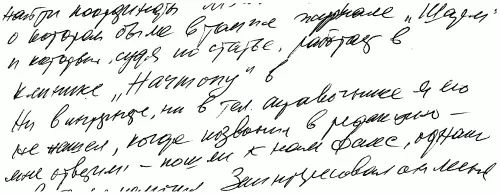 найти координаты
о котором была в том же журнале „Шарм"
и который, судя по статье, работает в
клинике „Начтопу" в
Ни в интернете, ни в тел. справочнике я его
не нашел, когда позвонил в редакцию –
мне ответили – пошли к нам факс, однако
Заинтересовал он меня